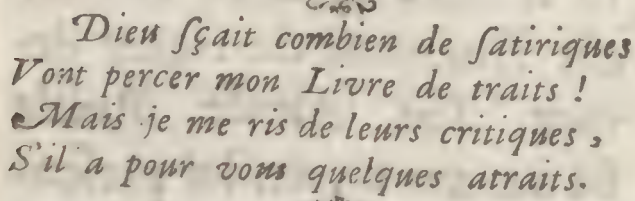 Dieu ſçait combien de ſatiriques
Vont percer mon Livre de traits !
Mais je me ris de leurs critiques,
S'il a pour vous quelques atraits.